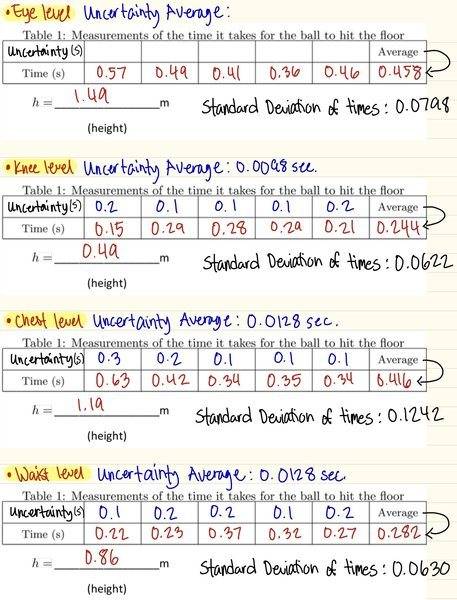 • Eye level Uncertainty Average:
Table 1: Measurements of the time it takes for the ball to hit the floor
Uncertainty (s) Average
Time (s) 0.57 0.49 0.41 0.36 0.46 0.458
h = 1.49 m Standard Deviation of times: 0.0798
(height)
• Knee level Uncertainty Average: 0.0098 sec.
Table 1: Measurements of the time it takes for the ball to hit the floor
Uncertainty (s) 0.2 0.1 0.1 0.1 0.2 Average
Time (s) 0.15 0.29 0.28 0.29 0.21 0.244
h = 0.49 m Standard Deviation of times: 0.0622
(height)
• Chest level Uncertainty Average: 0.0128 sec.
Table 1: Measurements of the time it takes for the ball to hit the floor
Uncertainty (s) 0.3 0.2 0.1 0.1 0.1 Average
Time (s) 0.63 0.42 0.34 0.35 0.34 0.416
h = 1.19 m Standard Deviation of times: 0.1242
(height)
• Waist level Uncertainty Average: 0.0128 sec.
Table 1: Measurements of the time it takes for the ball to hit the floor
Uncertainty (s) 0.1 0.2 0.2 0.1 0.2 Average
Time (s) 0.22 0.23 0.37 0.32 0.27 0.282
h = 0.86 m Standard Deviation of times: 0.0630
(height)